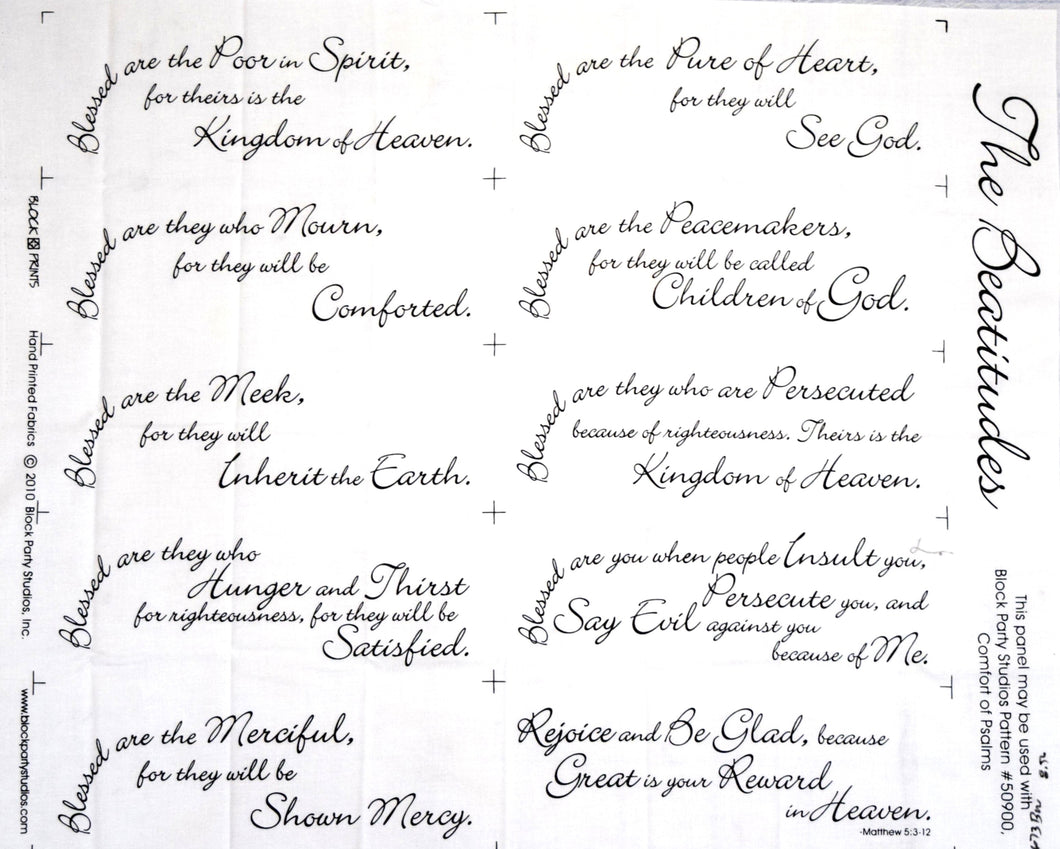 Blessed are the Poor in Spirit,
for theirs is the
Kingdom of Heaven.
Blessed are they who Mourn,
for they will be
Comforted.
Blessed are the Meek,
for they will
Inherit the Earth.
Blessed are they who
Hunger and Thirst
for righteousness, for they will be
Satisfied.
Blessed are the Merciful,
for they will be
Shown Mercy.
Blessed are the Pure of Heart,
for they will
See God.
Blessed are the Peacemakers,
for they will be called
Children of God.
Blessed are they who are Persecuted
because of righteousness. Theirs is the
Kingdom of Heaven.
Blessed are you when people Insult you,
Persecute you, and
Say Evil against you
because of Me.
Rejoice and Be Glad, because
Great is your Reward
in Heaven.
-Matthew 5:3-12
The Beatitudes
This panel may be used with
Block Party Studios Pattern #50900,
Comfort of Psalms
BLOCK PRINTS Hand Printed Fabrics © 2010 Block Party Studios, Inc. www.blockpartystudios.com